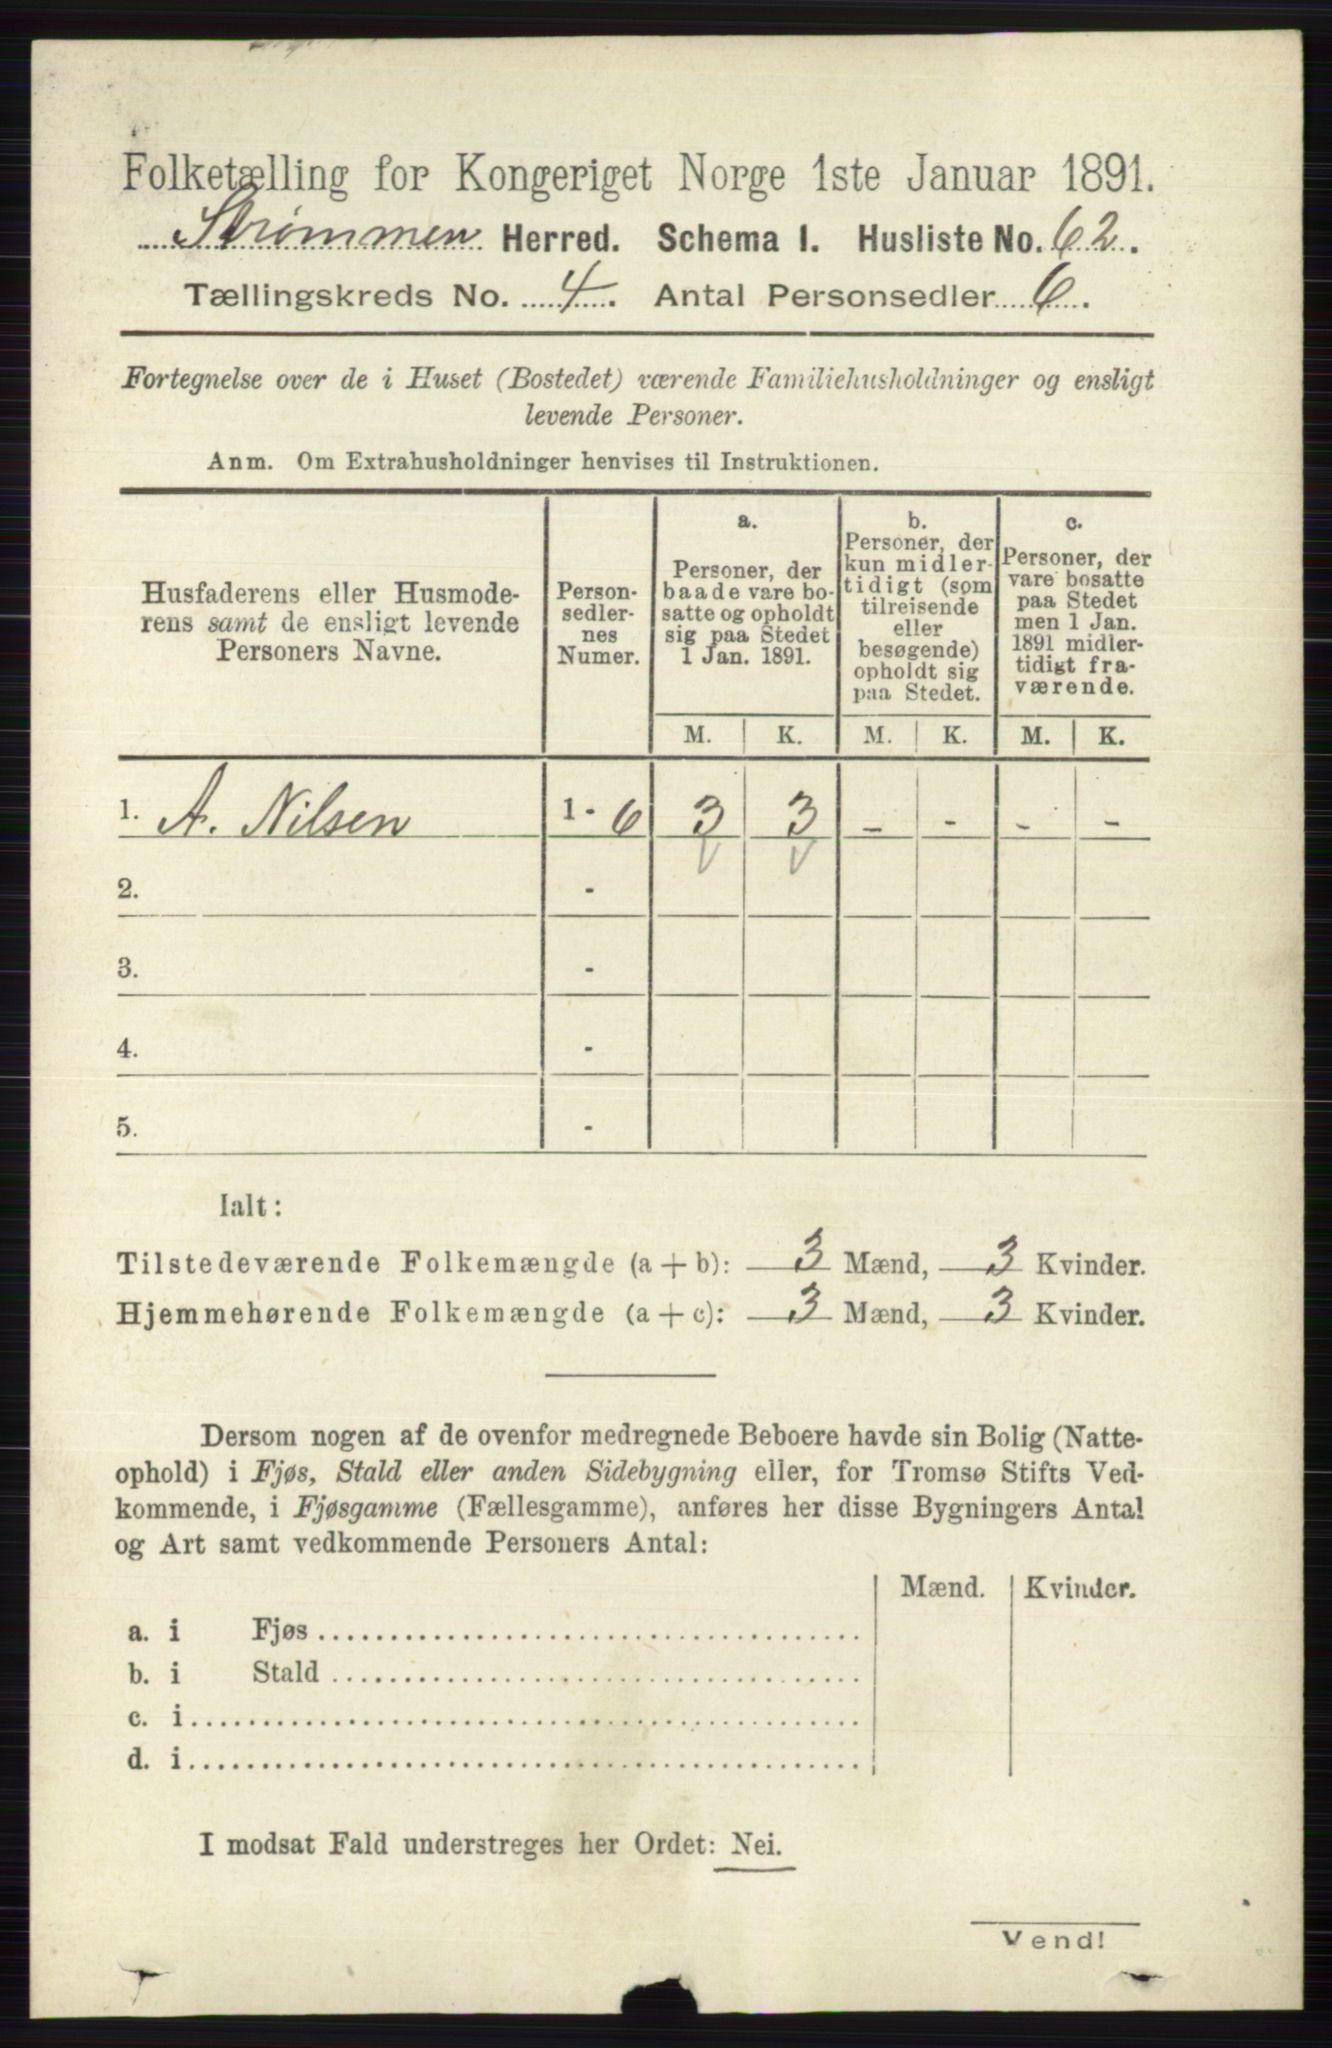 Folketælling for Kongeriget Norge 1ste Januar 1891.
Strømmen Herred. Schema I. Husliste No. 62.
Tællingskreds No. 4. Antal Personsedler 6.
Fortegnelse over de i Huset (Bostedet) værende Familiehusholdninger og ensligt
levende Personer.
Anm. Om Extrahusholdninger henvises til Instruktionen.
Husfaderens eller Husmode-
rens samt de ensligt levende
Personers Navne.
Person-
sedler-
nes
Numer.
a.
Personer, der
baade vare bo-
satte og opholdt
sig paa Stedet
1 Jan. 1891.
b.
Personer, der
kun midler-
tidigt (som
tilreisende
eller
besøgende)
opholdt sig
paa Stedet.
c.
Personer, der
vare bosatte
paa Stedet
men 1 Jan.
1891 midler-
tidigt fra-
værende.
M. K. M. K. M. K.
1. A. Nilsen 1 - 6 3 3 - - - -
2. -
3. -
4. -
5. -
Ialt:
Tilstedeværende Folkemængde (a + b): 3 Mænd, 3 Kvinder.
Hjemmehørende Folkemængde (a + c): 3 Mænd, 3 Kvinder.
Dersom nogen af de ovenfor medregnede Beboere havde sin Bolig (Natte-
ophold) i Fjøs, Stald eller anden Sidebygning eller, for Tromsø Stifts Ved-
kommende, i Fjøsgamme (Fællesgamme), anføres her disse Bygningers Antal
og Art samt vedkommende Personers Antal:
Mænd. Kvinder.
a. i Fjøs
b. i Stald
c. i
d. i
I modsat Fald understreges her Ordet: Nei.
Vend!